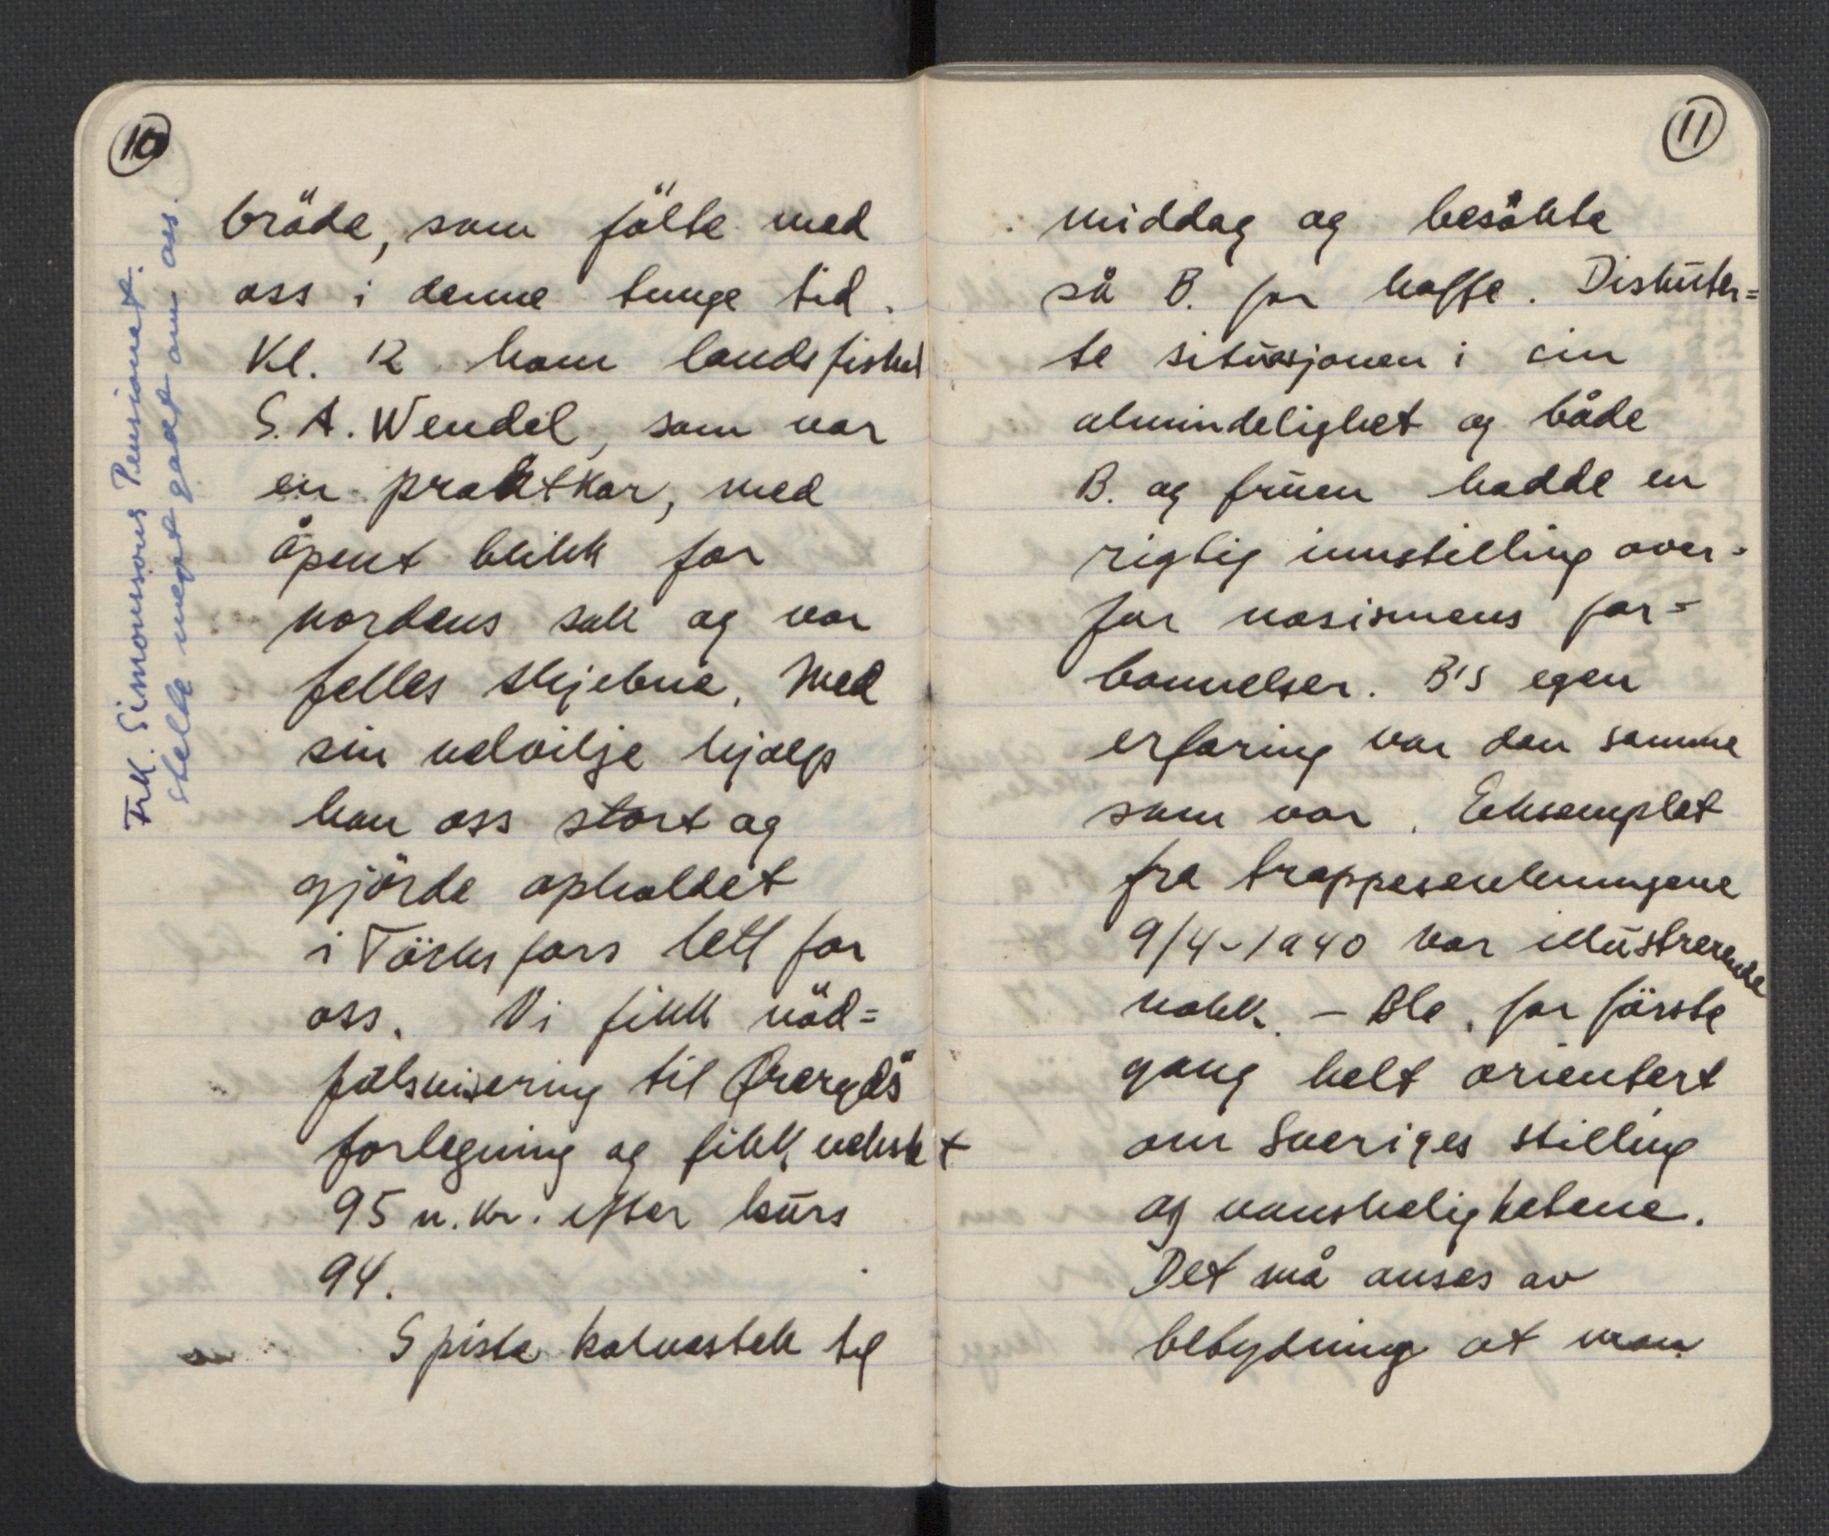 10
Frk. Simonssons Pensionat.
stelte meget godt om oss.
bröde, som fölte med
oss i denne tunge tid.
Kl. 12 kom landsfiskal
S. A. Wendel, som var
en praktkar, med
åpent blikk for
nordens sak og vor
felles skjebne. Med
sin velvilje hjalp
han oss stort og
gjörde opholdet
i Töcksfors lett for
oss. Vi fikk nöd=
til
forlegning og fikk vekslet
95 n. kr. efter kurs
94.
Spiste kalvestek til
11
middag og besökte
så B. for kaffe. Diskuter=
te situasjonen i sin
almindelighet og både
B. og fruen hadde en
rigtig innstilling over=
for nasismens for=
bannelser. B's egen
erfaring var den samme
som vor. Eksemplet
fra troppesenkningene
9/4-1940 var illustrerende
nokk. - Ble for förste
gang helt orientert
om Sveriges stilling
og vanskelighetene.
Det må anses av
betydning at man